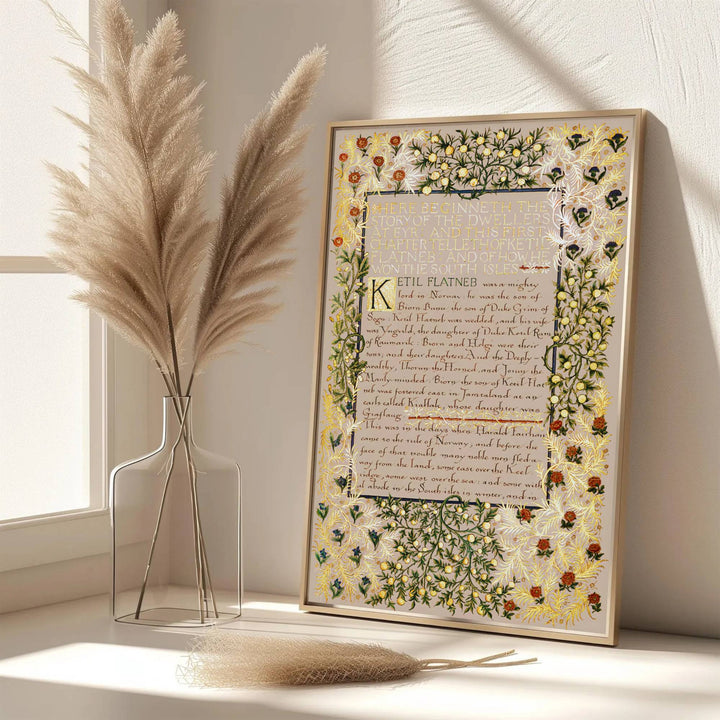 HERE BEGINNETH THE
STORY OF THE DWELLERS
AT EYR AND THIS FIRST
CHAPTER TELLETH OF KETIL
FLATNEB AND OF HOW HE
WON THE SOUTH ISLES
KETIL FLATNEB was a mighty
lord in Norway: he was the son of
Biorn Buna the son of Duke Grim of
Sogn: Ketil Flatneb was wedded, and his wife
was Yngvild, the daughter of Duke Ketil Ram
of Raumarik: Biorn and Helge were their
sons; and their daughters And the Deeply-
wealthy, Thorun the Horned, and Jorun the
Manly-minded: Biorn the son of Ketil Flat
neb was fostered east in Jamtaland at an
earls called Kiallak, whose daughter was
Giaflaug
This was in the days when Harald Fairhair
came to the rule of Norway; and before the
face of that trouble many noble men fled a-
way from the land, some east over the Keel
ridge, some west over the sea: and some will
abode in the South isles in winter, and in